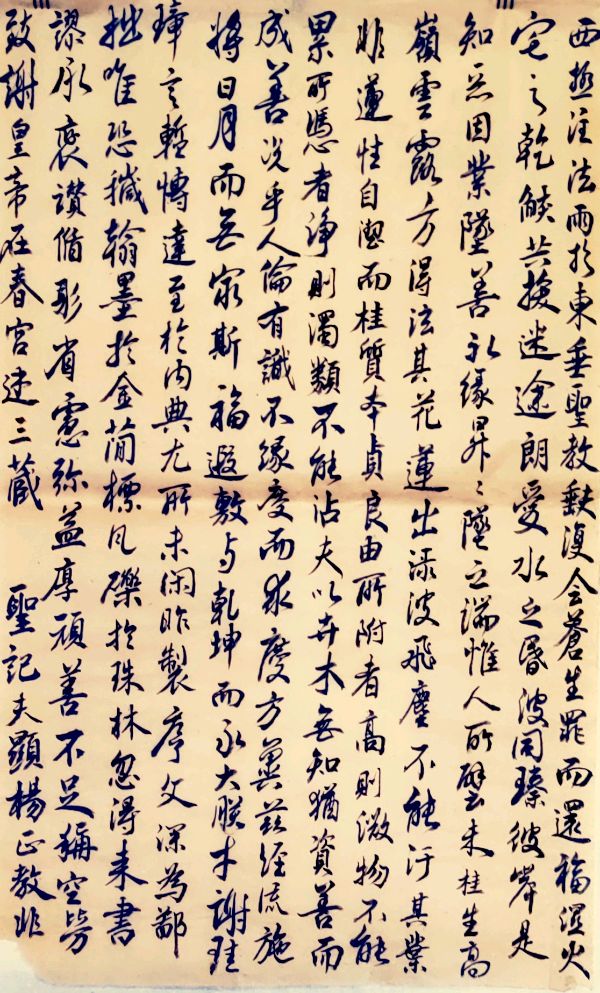 西極注法雨於東垂聖教缺復全蒼生罪而還福濕火
宅之乾焰共拔迷途朗愛水之昏波同臻彼岸是
知惡因業墜善以緣昇〻墜之端惟人所譬夫桂生高
嶺雲露方得泫其花蓮出淥波飛塵不能汙其葉
非蓮性自潔而桂質本貞良由所附者高則微物不能
累所憑者淨則濁類不能沾夫以卉木無知猶資善而
成善況乎人倫有識不緣慶而求慶方冀茲經流施
將日月而無窮斯福遐敷与乾坤而永大朕才謝珪
璋言慙博達至於内典尤所未閑昨製序文深為鄙
拙唯恐穢翰墨於金簡標瓦礫於珠林忽得来書
謬承褒讚循躬省慮弥益厚顏善不足稱空勞
致謝皇帝在春宮述三藏 聖記夫顯揚正教非